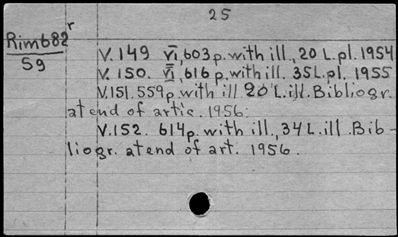 25
Rim682r
Sg
V.149 VI, 603 p. with ill., 20 L. pl. 1954
V. 150. VI, 616 p. with ill. 35 L. pl. 1955
V.151. 559 p. with ill 20 L. ill. Bibliogr.
at end of artic. 1956.
V.152. 614 p. with ill., 34 L. ill. Bib-
liogr. at end of art. 1956.